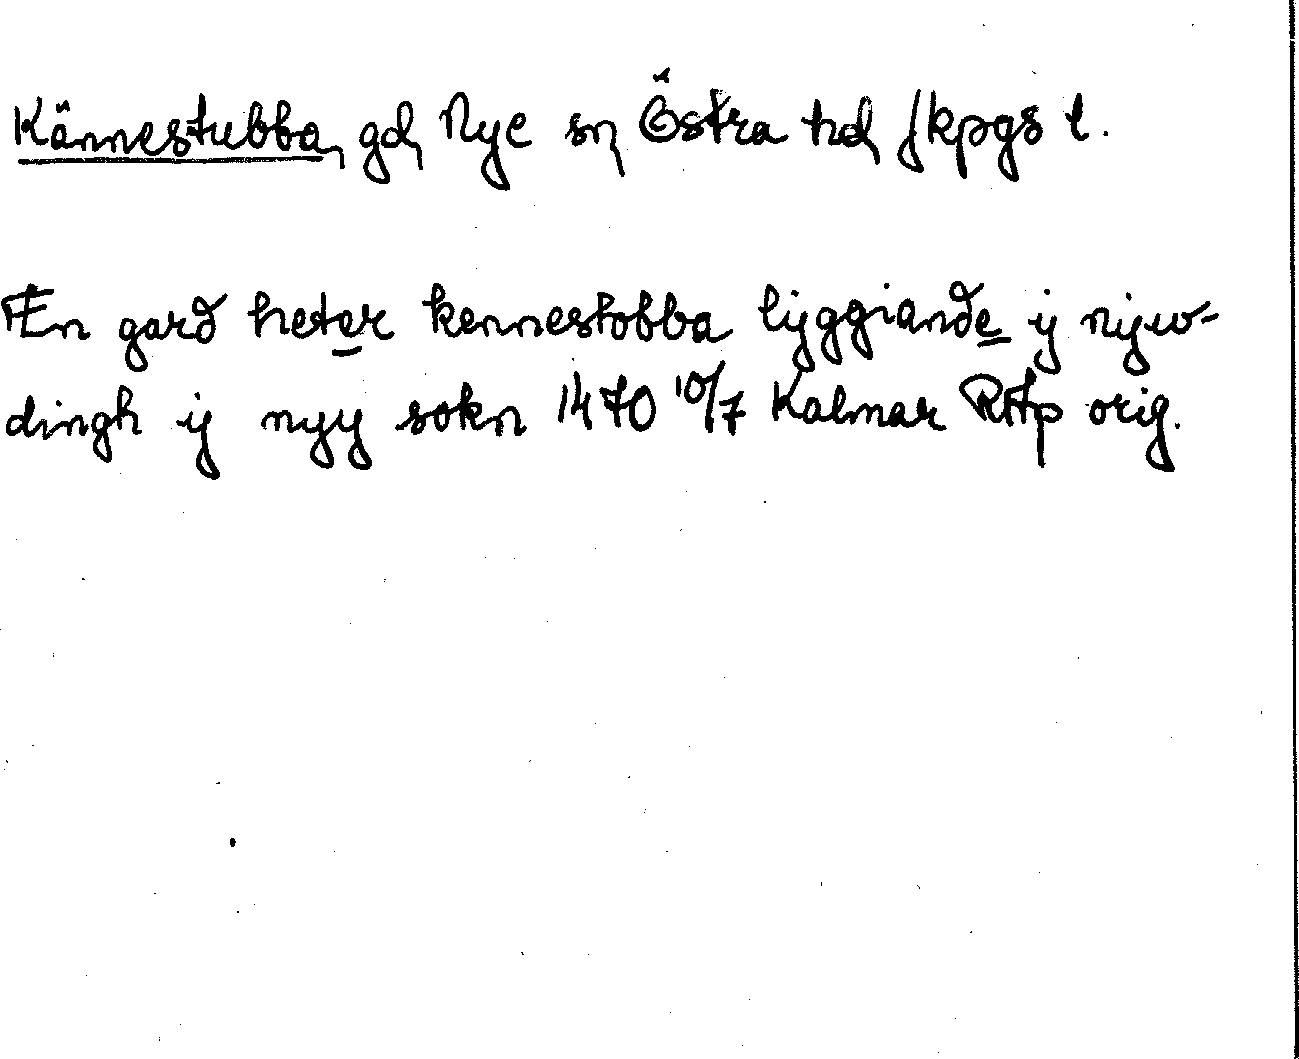 Kännestubba, gd, Nye sn, Östra hd, Jkpgs l.
En gard heter kennestobba lyggiande ij nyw-
dingh ij nyy sokn 1470 10/7 Kalmar RAp orig.